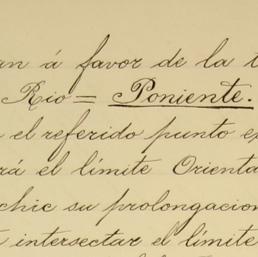 an á favor de la t
Rio = Poniente.
el referido punto e
rá el límite Orienta
chic su prolongacion
intersectar el límite